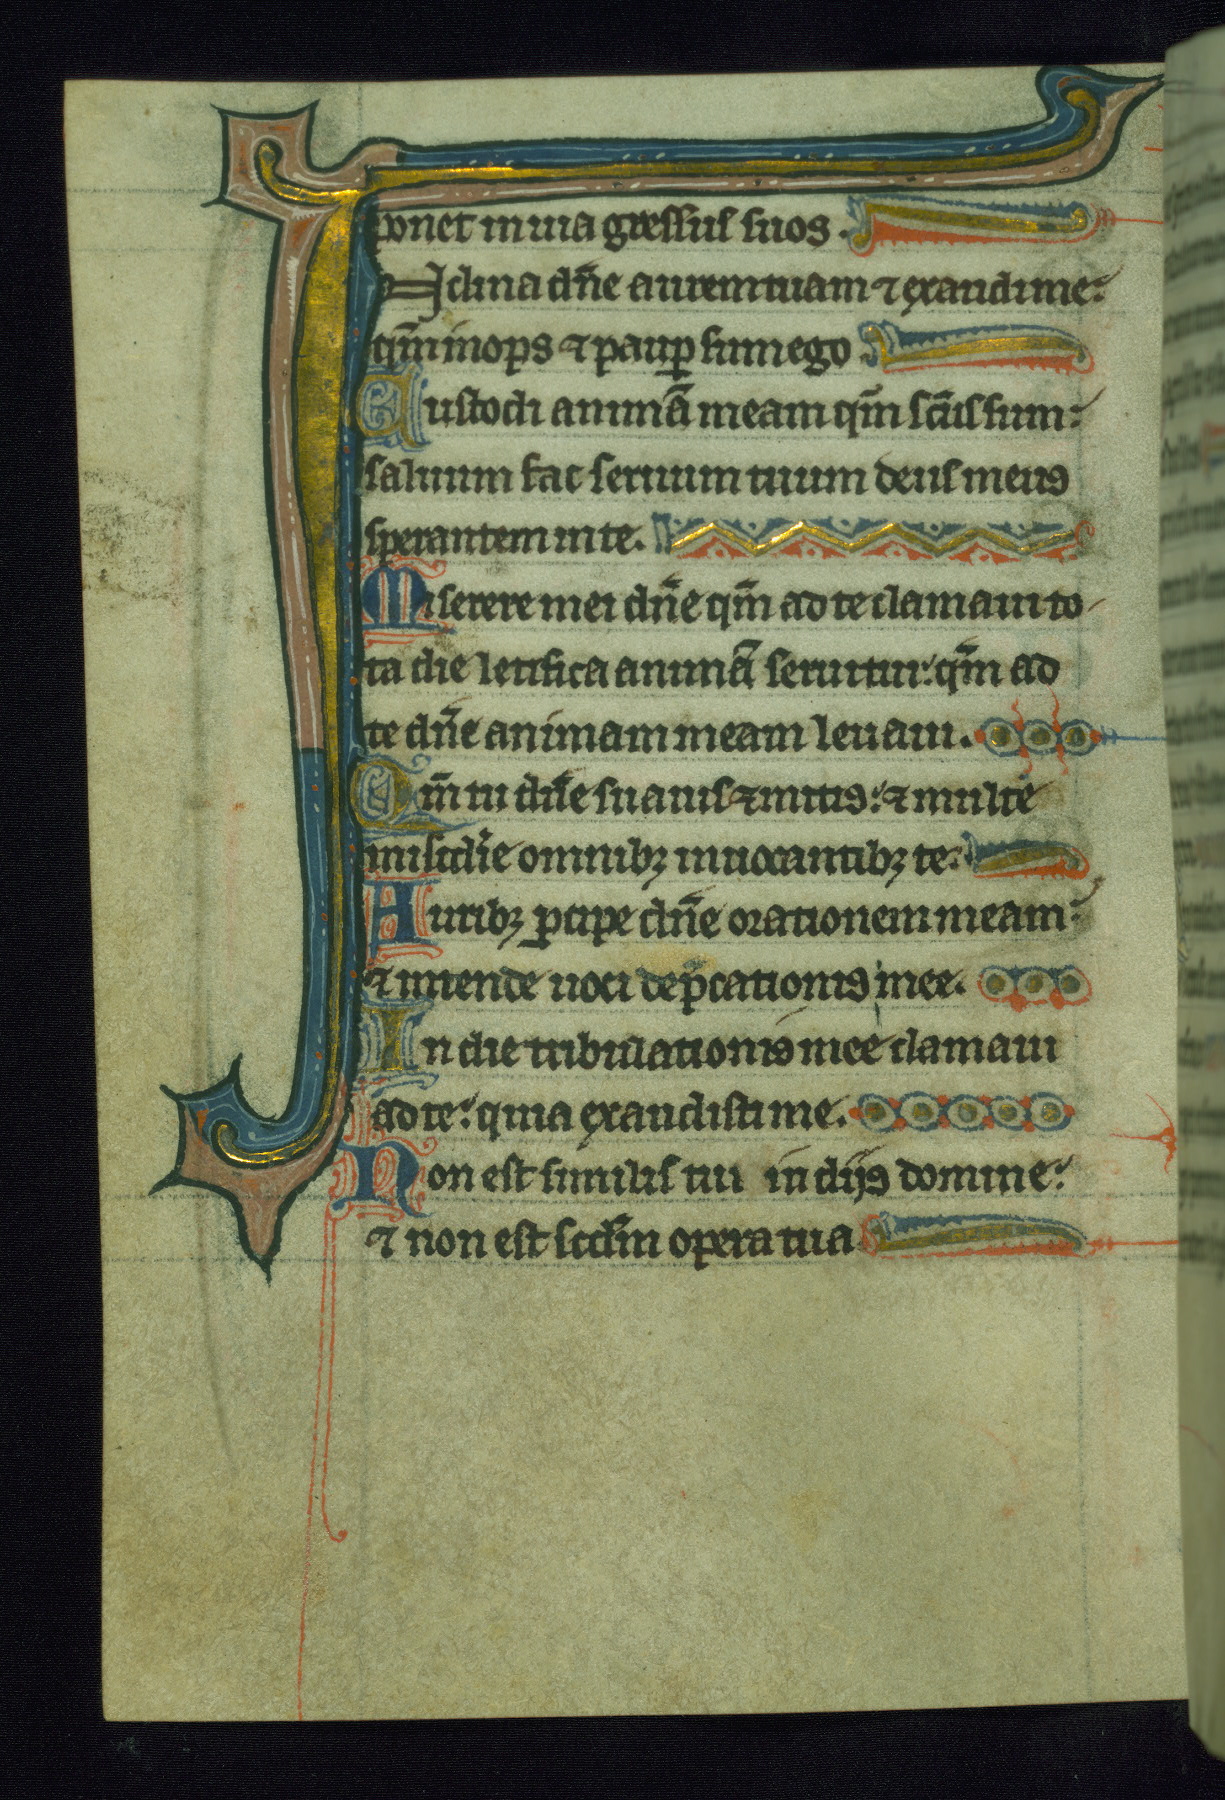 ponet in uia gressus suos.
Inclina dñe aurem tuam ⁊ exaudi me:
qm̃ inops ⁊ paup̱ sum ego.
Custodi animã meam qm̃ sc̃us sum:
saluum fac seruum tuum deus meus
sperantem in te.
Miserere mei dñe qm̃ ad te clamaui to
ta die letifica animã serui tui: qm̃ ad
te dñe animam meam leuaui.
Qm̃ tu dñe suauis ⁊ mitis: ⁊ multe
misc̃die omnibꝫ inuocantibꝫ te.
Auribꝫ ꝑcipe dñe orationem meam:
⁊ intende uoci dep̃cationis mee.
In die tribulationis mee clamaui
ad te: quia exaudisti me.
Non est similis tui in dijs domine:
⁊ non est scd̃m opera tua